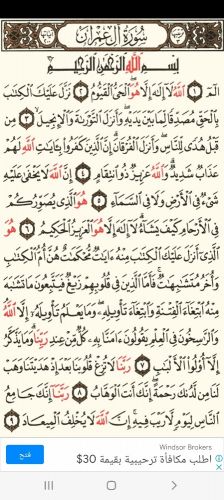 سُورَةُ آلِ عِمْرَانَ
بِسْمِ اللَّهِ الرَّحْمَٰنِ الرَّحِيمِ
الٓمٓ ١ اللَّهُ لَا إِلَٰهَ إِلَّا هُوَ الْحَيُّ الْقَيُّومُ ٢ نَزَّلَ عَلَيْكَ الْكِتَٰبَ
بِالْحَقِّ مُصَدِّقًا لِّمَا بَيْنَ يَدَيْهِ وَأَنزَلَ التَّوْرَىٰةَ وَالْإِنجِيلَ ٣ مِن
قَبْلُ هُدًى لِّلنَّاسِ وَأَنزَلَ الْفُرْقَانَ إِنَّ الَّذِينَ كَفَرُوا بِـَٔايَٰتِ اللَّهِ لَهُمْ
عَذَابٌ شَدِيدٌ وَاللَّهُ عَزِيزٌ ذُو انتِقَامٍ ٤ إِنَّ اللَّهَ لَا يَخْفَىٰ عَلَيْهِ
شَيْءٌ فِي الْأَرْضِ وَلَا فِي السَّمَاءِ ٥ هُوَ الَّذِي يُصَوِّرُكُمْ
فِي الْأَرْحَامِ كَيْفَ يَشَاءُ لَا إِلَٰهَ إِلَّا هُوَ الْعَزِيزُ الْحَكِيمُ ٦ هُوَ
الَّذِي أَنزَلَ عَلَيْكَ الْكِتَٰبَ مِنْهُ ءَايَٰتٌ مُّحْكَمَٰتٌ هُنَّ أُمُّ الْكِتَٰبِ
وَأُخَرُ مُتَشَٰبِهَٰتٌ فَأَمَّا الَّذِينَ فِي قُلُوبِهِمْ زَيْغٌ فَيَتَّبِعُونَ مَا تَشَٰبَهَ
مِنْهُ ابْتِغَاءَ الْفِتْنَةِ وَابْتِغَاءَ تَأْوِيلِهِ وَمَا يَعْلَمُ تَأْوِيلَهُ إِلَّا اللَّهُ
وَالرَّٰسِخُونَ فِي الْعِلْمِ يَقُولُونَ ءَامَنَّا بِهِ كُلٌّ مِّنْ عِندِ رَبِّنَا وَمَا يَذَّكَّرُ
إِلَّا أُولُوا الْأَلْبَٰبِ ٧ رَبَّنَا لَا تُزِغْ قُلُوبَنَا بَعْدَ إِذْ هَدَيْتَنَا وَهَبْ
لَنَا مِن لَّدُنكَ رَحْمَةً إِنَّكَ أَنتَ الْوَهَّابُ ٨ رَبَّنَا إِنَّكَ جَامِعُ
النَّاسِ لِيَوْمٍ لَّا رَيْبَ فِيهِ إِنَّ اللَّهَ لَا يُخْلِفُ الْمِيعَادَ ٩
Windsor Brokers
اطلب مكافأة ترحيبية بقيمة 30$
فتح